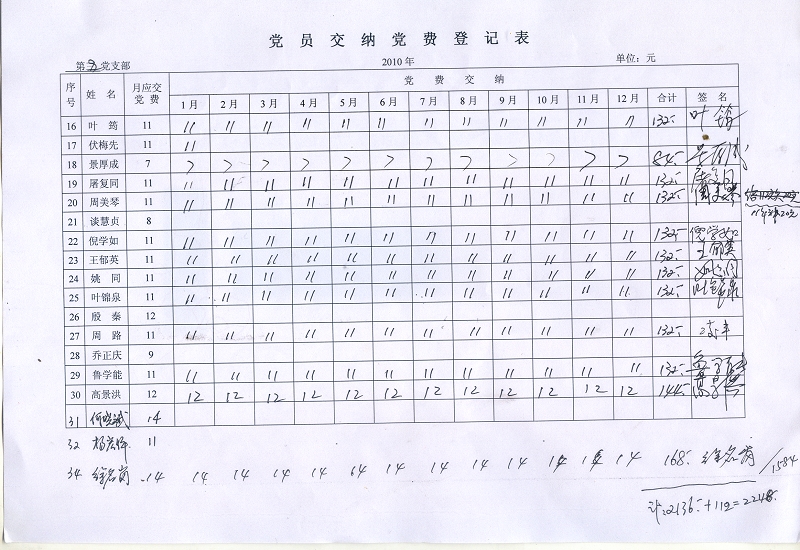 党员交纳党费登记表
第 党支部 2010年 单位：元
序号 姓名 月应交党费 党费交纳 签名
1月 2月 3月 4月 5月 6月 7月 8月 9月 10月 11月 12月 合计
16 叶筠 11 11 11 11 11 11 11 11 11 11 11 11 11 132- 叶筠
17 伏梅先 11 11
18 景厚成 7 7 7 7 7 7 7 7 7 7 7 7 7 84-
19 屠复同 11 11 11 11 11 11 11 11 11 11 11 11 11 132-
20 周美琴 11 11 11 11 11 11 11 11 11 11 11 11 11 132- 周美琴
21 谈慧贞 8
22 倪学如 11 11 11 11 11 11 11 11 11 11 11 11 11 132- 倪学如
23 王郁英 11 11 11 11 11 11 11 11 11 11 11 11 11 132- 王郁英
24 姚同 11 11 11 11 11 11 11 11 11 11 11 11 11 132-
25 叶锦泉 11 11 11 11 11 11 11 11 11 11 11 11 11 132- 叶锦泉
26 殷秦 12
27 周路 11 11 11 11 11 11 11 11 11 11 11 11 11 132-
28 乔正庆 9
29 鲁学能 11 11 11 11 11 11 11 11 11 11 11 11 11 132-
30 高景洪 12 12 12 12 12 12 12 12 12 12 12 12 12 144-
31 14
32 11
34 14 14 14 14 14 64 14 14 14 14 14 14 14 168-
/1584
2136-+112=2248-